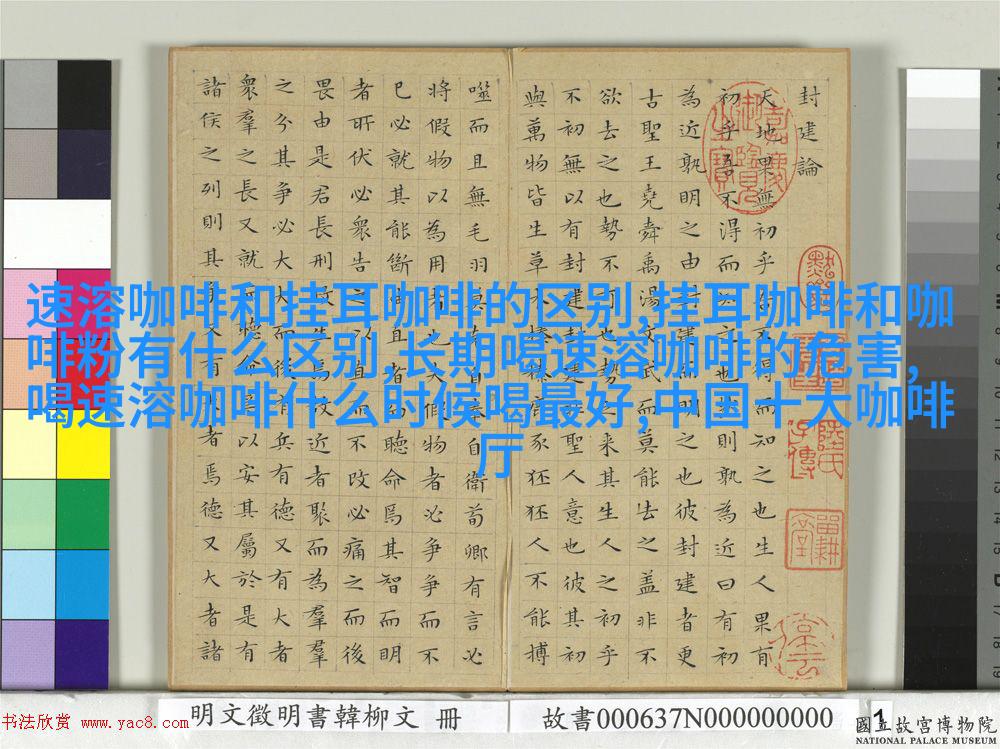 速溶咖啡和挂耳咖啡的区别,挂耳咖啡和咖
啡粉有什么区别,长期喝速溶咖啡的危害,
喝速溶咖啡什么时候喝最好,中国十大咖啡
厅
封建論
天地果無初乎吾不得而知之也生人果有
初乎吾不得而知之也然則孰為近曰有初
為近孰明之由封建而明之也彼封建者更
古聖王堯舜禹湯文武而莫能去之蓋非不
欲去之也勢不可也勢之來其生人之初乎
不初無以有封建封建非聖人意也彼其初
與萬物皆生草木榛榛鹿豕狉狉人不能搏
噬而且無毛羽莫克自奉自衛荀卿有言必
將假物以為用者也夫假物者必爭爭而不
已必就其能斷曲直者而聽命焉其智而明
者所伏必衆告之以直而不改必痛之而後
畏由是君長刑政生焉故近者聚而為羣羣
之分其爭必大大而後有兵有德又有大者
衆羣之長又就而聽命焉以安其屬於是有
諸侯之列則其爭又有大者焉德又大者諸
明文徵明書韓柳文 冊
故書000637N000000000
1
國立故宮博物院
NATIONAL PALACE MUSEUM
书法欣赏 www.yac8.com